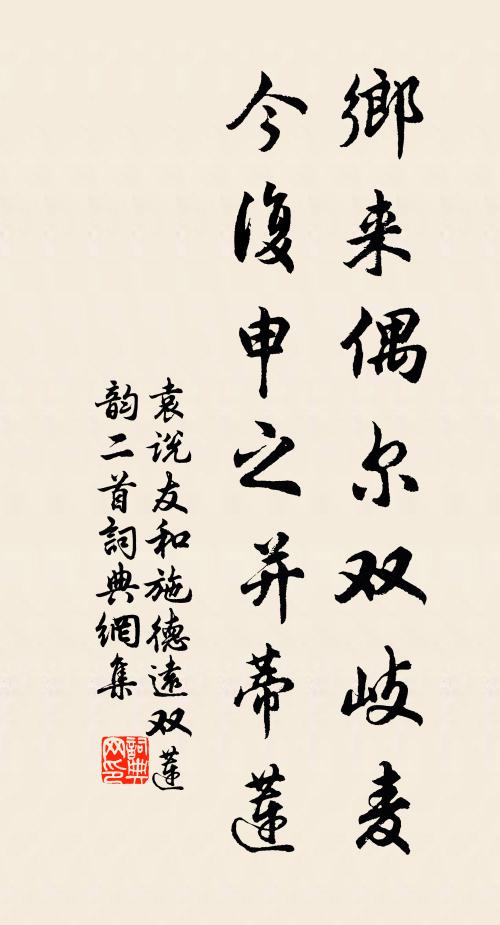 鄉来偶尔双岐麦
今復申之并蒂蓮
袁说友和施德遠双蓮
韵二首詞典網集
詞典网印